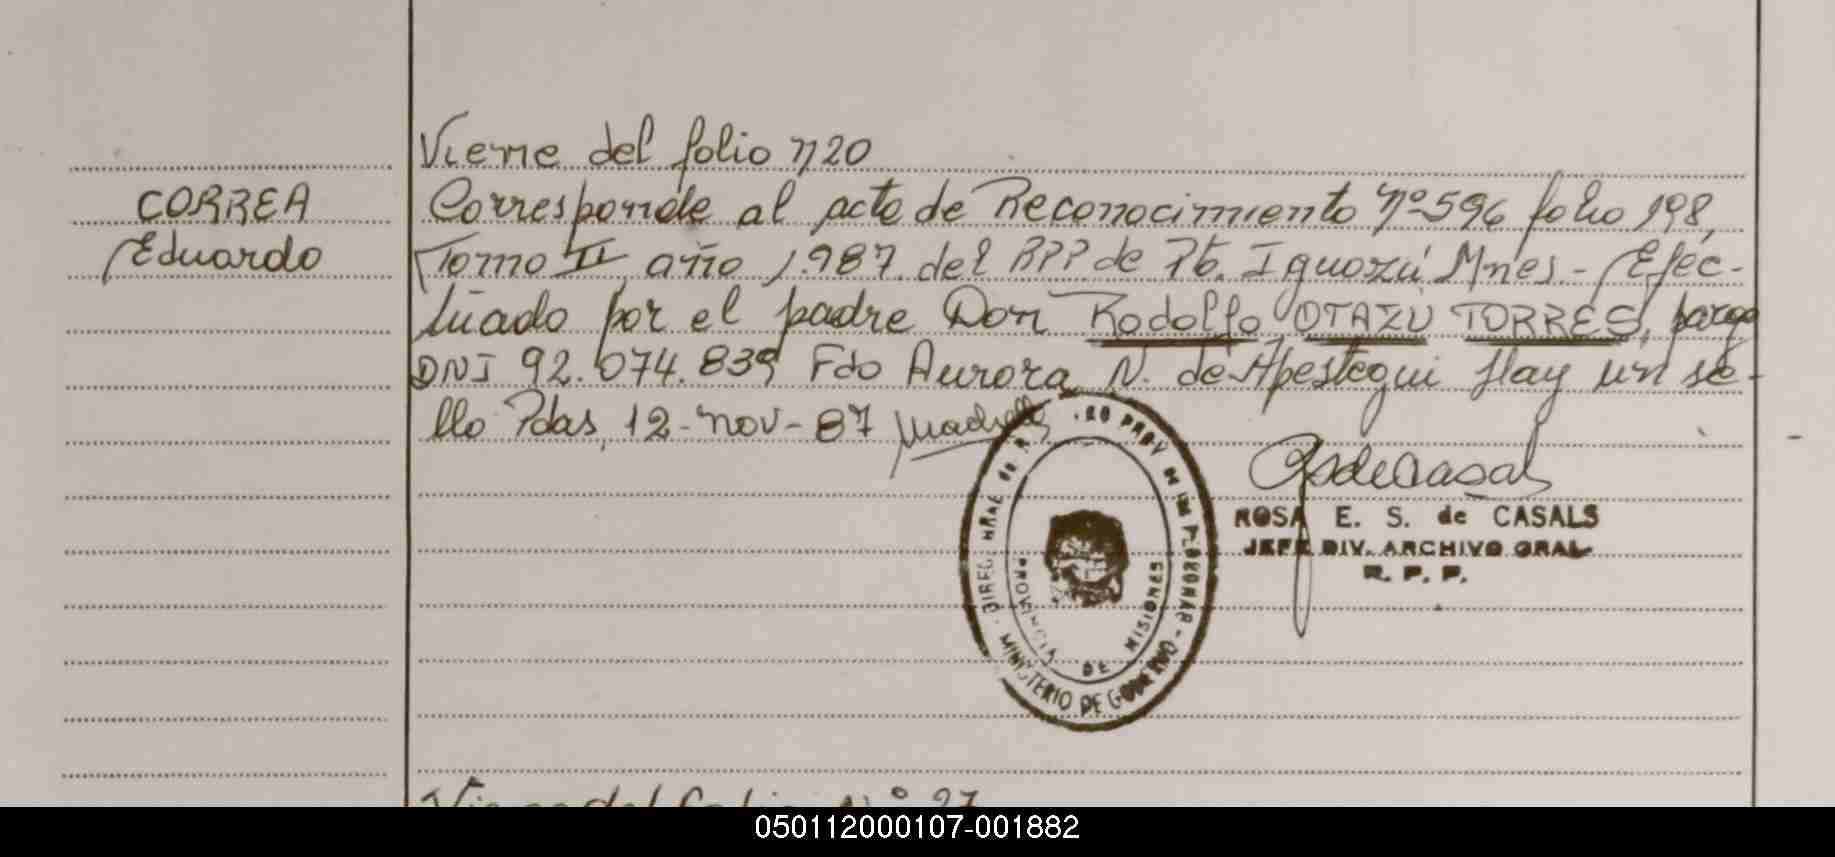 Viene del folio n20
CORREA
Eduardo
Corresponde al acta de Reconocimiento Nº 596 folio 198,
Tomo II, año 1.987. del RPP de Pto. Iguazú Mnes.- Efec-
tuado por el padre Don Rodolfo OTAZÚ TORRES, parag
DNI 92.074.839 Fdo Aurora N. de Apestegui Hay un se-
llo Pdas, 12-nov-87
DIREC. GRAL de R. PROV DE LAS PERSONAS
MINISTERIO DE GOBIERNO
PROVINCIA DE MISIONES
ROSA E. S. de CASALS
JEFE DIV. ARCHIVO GRAL
R. P. P.
Viene del folio Nº 27
050112000107-001882